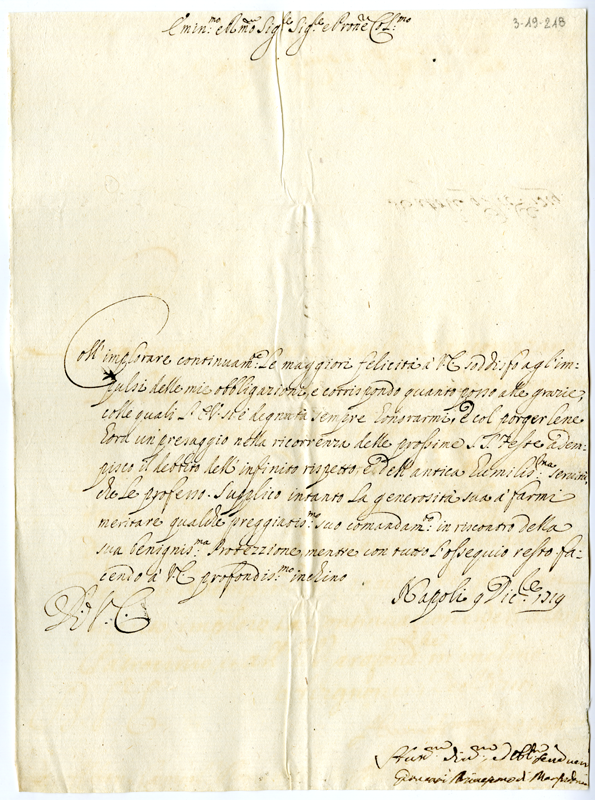 3-19-218
Emin.mo e R.mo Sig.re Sig.re e Pron.e Col.mo
Coll'implorare continuam.te le maggiori felicità à V.E. soddisfo agl'im-
pulsi delle mie obbligazioni, e corrispondo quanto posso alle grazie,
colle quali l'E.V. si è degnata sempre honorarmi, e col porgerlene
hora un presaggio nella ricorrenza delle prossime S.S.te feste adem-
pisco il debbito dell'infinito rispetto, e dell'antica humiliss.ma servitù,
che le professo. Supplico intanto la generosità sua à farmi
meritare qualche preggiatis.mo suo comandam.to in riscontro della
sua benignis.ma Protezzione, mentre con tutto l'ossequio resto fa-
cendo à V.E. profondis.mo inchino
Napoli 9 Dic.bre 1719
Di V.E.
Hum.mo Div.mo Obb.mo
Giovanni di